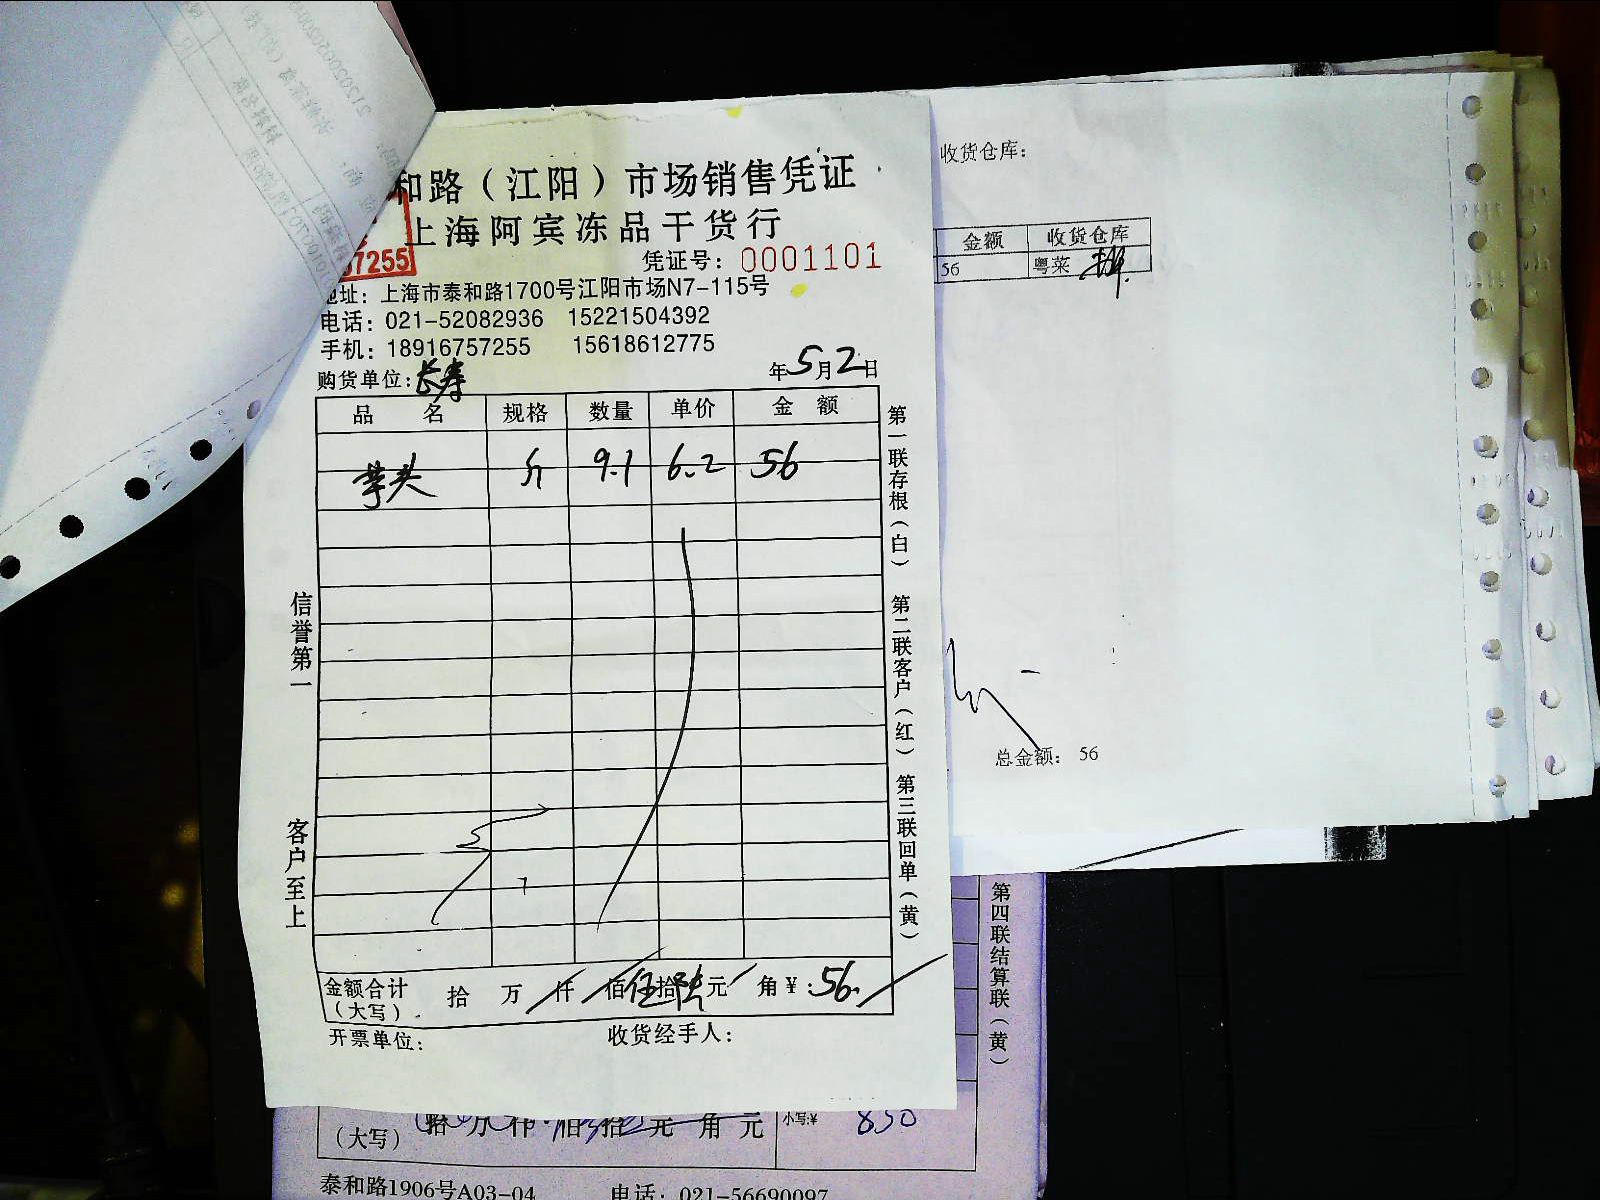 和路（江阳）市场销售凭证
上海阿宾冻品干货行
57255
凭证号：0001101
地址：上海市泰和路1700号江阳市场N7-115号
电话：021-52082936 15221504392
手机：18916757255 15618612775
购货单位：长寿 年5月2日
品名 规格 数量 单价 金额
芋头 斤 9.1 6.2 56
信誉第一
客户至上
第一联存根（白） 第二联客户（红） 第三联回单（黄）
金额合计（大写） 拾 万 仟 佰伍拾陆元 角￥：56.
开票单位： 收货经手人：
收货仓库：
金额 收货仓库
56 粤菜
总金额： 56
第四联结算联（黄）
（大写） 拾 万 仟 佰 拾 元 角 元 小写:￥ 850
泰和路1906号A03-04 电话：021-56690097